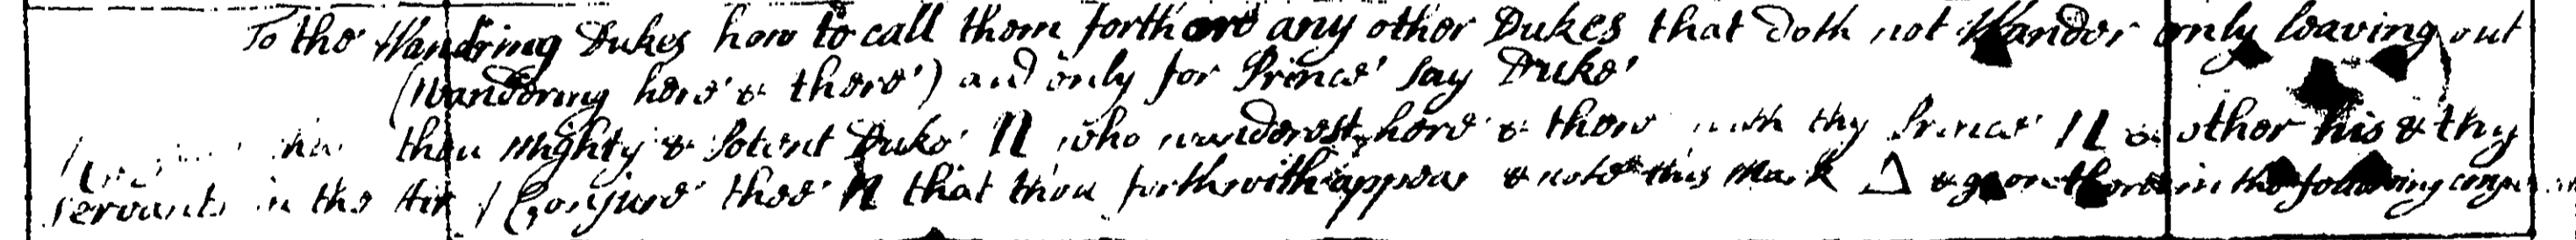 To the Wandring Dukes how to call them forth are any other Dukes that doth not Wander only leaving out
(Wandering here & there) and only for Prince say Duke
thou mighty & Potent Duke n who wanderest here & there with thy Prince n & other his & thy
servants in the Air I Conjure thee n that thou forthwith appear & note this mark △ & goe on there in the following